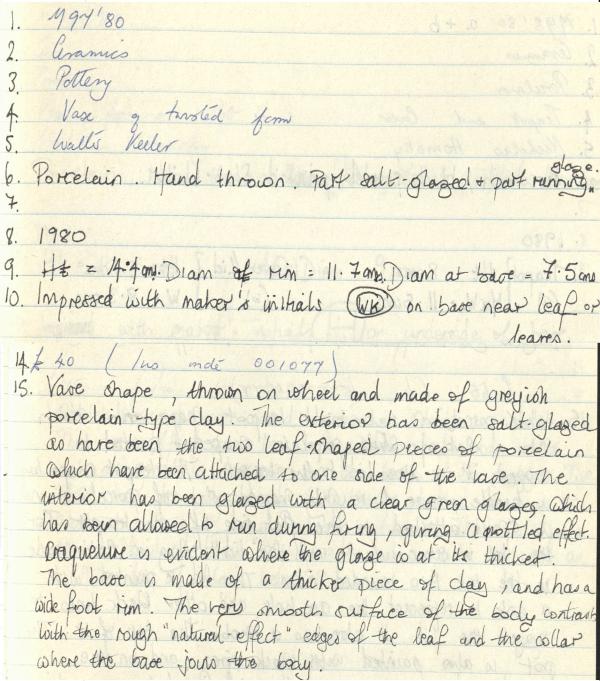 1. M97'80
2. Ceramics
3. Pottery
4. Vase of twisted form
5. Walter Keeler
6. Porcelain. Hand thrown. Part salt-glazed + part running glaze.
7.
8. 1980
9. Ht = 14.4cms. Diam of rim = 11.7cms. Diam at base = 7.5cms
10. Impressed with maker's initials WK on base near leaf or
leaves.
14. £40 (Inv mdé 001077)
15. Vase shape, thrown on wheel and made of greyish
porcelain-type clay. The exterior has been salt-glazed
as have been the two leaf-shaped pieces of porcelain
which have been attached to one side of the vase. The
interior has been glazed with a clear green glazes which
has been allowed to run during firing, giving a mottled effect.
Craquelure is evident where the glaze is at its thickest.
The base is made of a thicker piece of clay, and has a
wide foot rim. The very smooth surface of the body contrasts
with the rough "natural-effect" edges of the leaf and the collar
where the base joins the body.